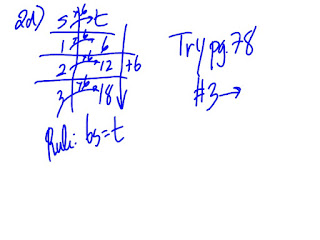 2d) s ×6→ t
1 ×6→ 6
2 ×6→ 12 +6
3 ×6→ 18
Rule: 6s=t
Try pg. 78
#3→